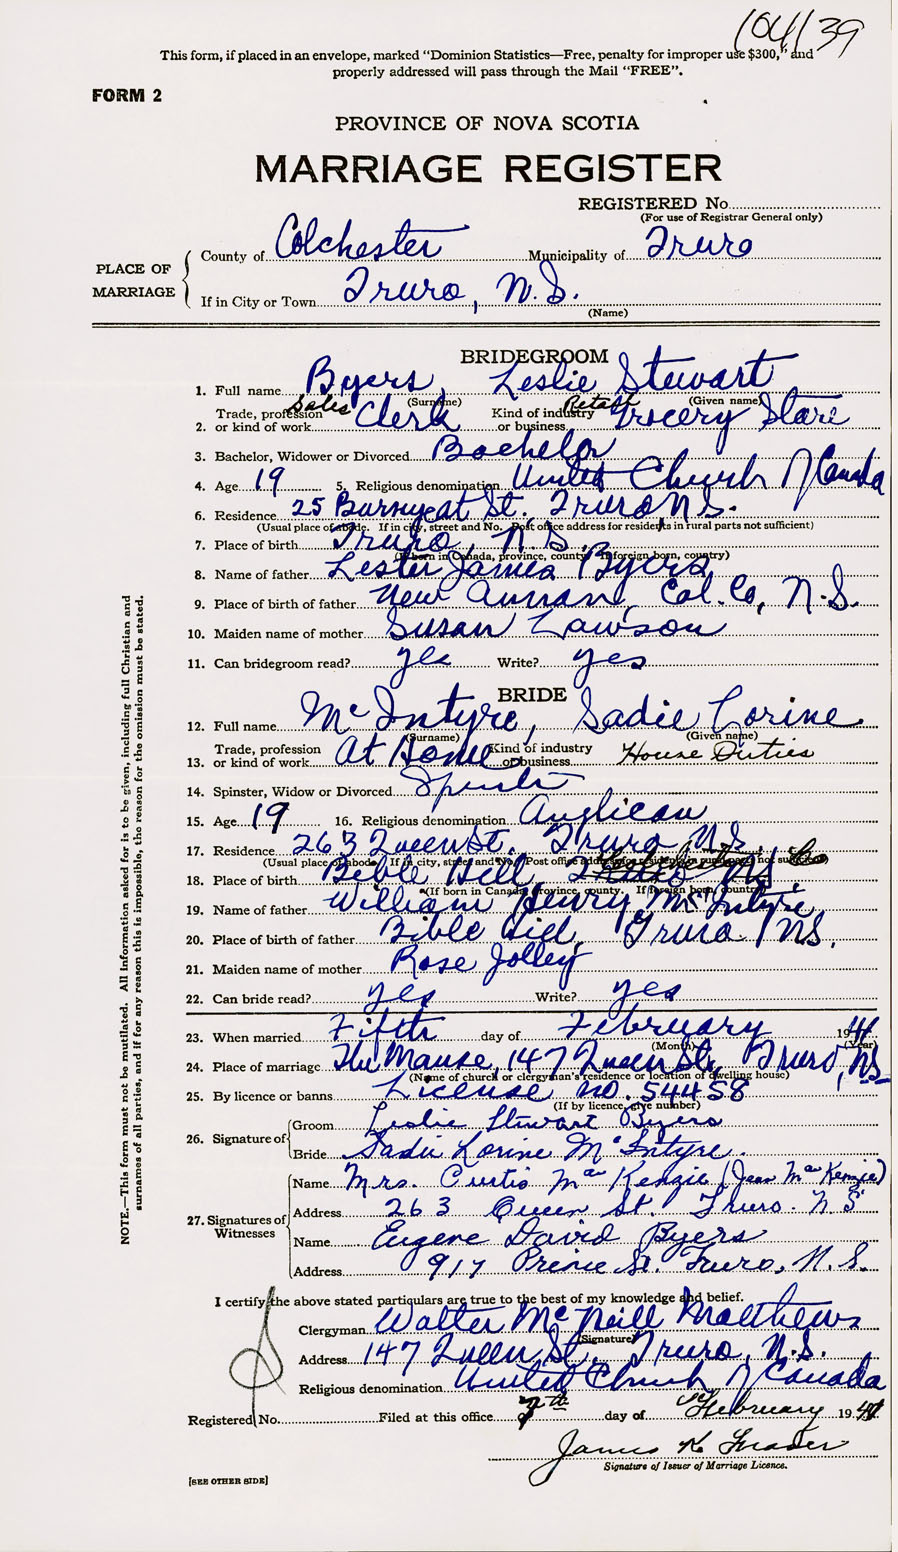 104139
This form, if placed in an envelope, marked "Dominion Statistics—Free, penalty for improper use $300," and
properly addressed will pass through the Mail "FREE".
FORM 2
PROVINCE OF NOVA SCOTIA
MARRIAGE REGISTER
REGISTERED No
(For use of Registrar General only)
PLACE OF MARRIAGE
County of Colchester Municipality of Truro
If in City or Town Truro, N.S.
(Name)
BRIDEGROOM
1. Full name Byers, Leslie Stewart
(Surname) (Given name)
2. Trade, profession or kind of work Sales Clerk Kind of industry or business Retail Grocery Store
3. Bachelor, Widower or Divorced Bachelor
4. Age 19 5. Religious denomination United Church of Canada
6. Residence 25 St. Truro N.S.
(Usual place of abode. If in city, street and No. Post office address for residents in rural parts not sufficient)
7. Place of birth Truro, N.S.
(If born in Canada, province, county. If foreign born, country)
8. Name of father Lester James Byers
9. Place of birth of father New Annan, Col. Co, N.S.
10. Maiden name of mother Susan Lawson
11. Can bridegroom read? yes Write? yes
BRIDE
12. Full name McIntyre, Sadie Lorine
(Surname) (Given name)
13. Trade, profession or kind of work At Home Kind of industry or business House Duties
14. Spinster, Widow or Divorced Spinster
15. Age 19 16. Religious denomination Anglican
17. Residence 263 Queen St. Truro N.S.
(Usual place of abode. If in city, street and No. Post office address for residents in rural parts not sufficient)
18. Place of birth Bible Hill, NS
(If born in Canada, province, county. If foreign born, country)
19. Name of father William Henry McIntyre
20. Place of birth of father Bible Hill, Truro NS.
21. Maiden name of mother Rose Jolley
22. Can bride read? yes Write? yes
23. When married Fifth day of February 1941
(Month) (Year)
24. Place of marriage The Manse, 147 Queen St., Truro, NS
(Name of church or clergyman's residence or location of dwelling house)
25. By licence or banns License no. 54458
(If by licence, give number)
26. Signature of Groom Leslie Stewart Byers
Bride Sadie Lorine McIntyre.
27. Signatures of Witnesses Name Mrs. Curtis MacKenzie (Jean MacKenzie)
Address 263 Queen St. Truro. N S
Name Eugene David Byers
Address 917 Prince St. Truro, N.S.
I certify the above stated particulars are true to the best of my knowledge and belief.
Clergyman Walter McNeill Matthews
(Signature)
Address 147 Queen St. Truro, N.S.
Religious denomination United Church of Canada
Registered No. Filed at this office 7th day of February 1941
James K Fraser
Signature of Issuer of Marriage Licence.
[SEE OTHER SIDE]
NOTE.—This form must not be mutilated. All information asked for is to be given, including full Christian and
surnames of all parties, and if for any reason this is impossible, the reason for the omission must be stated.